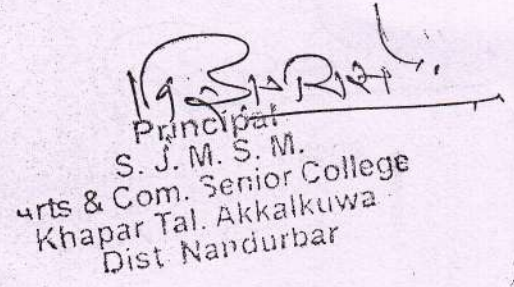 Principal
S. J. M. S. M.
arts & Com. Senior College
Khapar Tal. Akkalkuwa
Dist Nandurbar